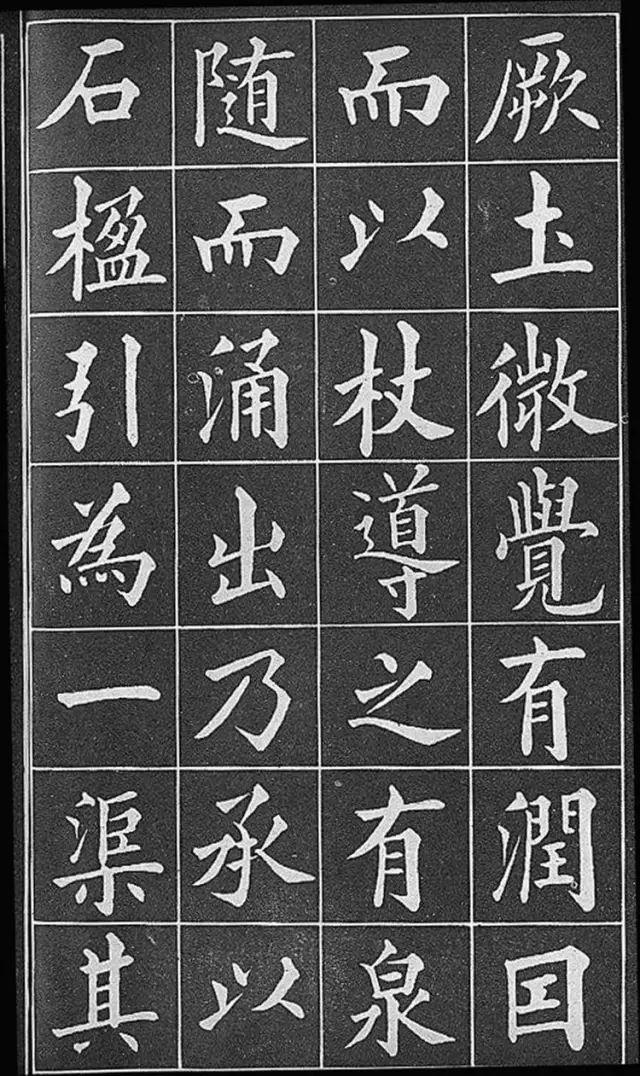 厥土微覺有潤囙
而以杖導之有泉
随而涌出乃承以
石楹引為一渠其